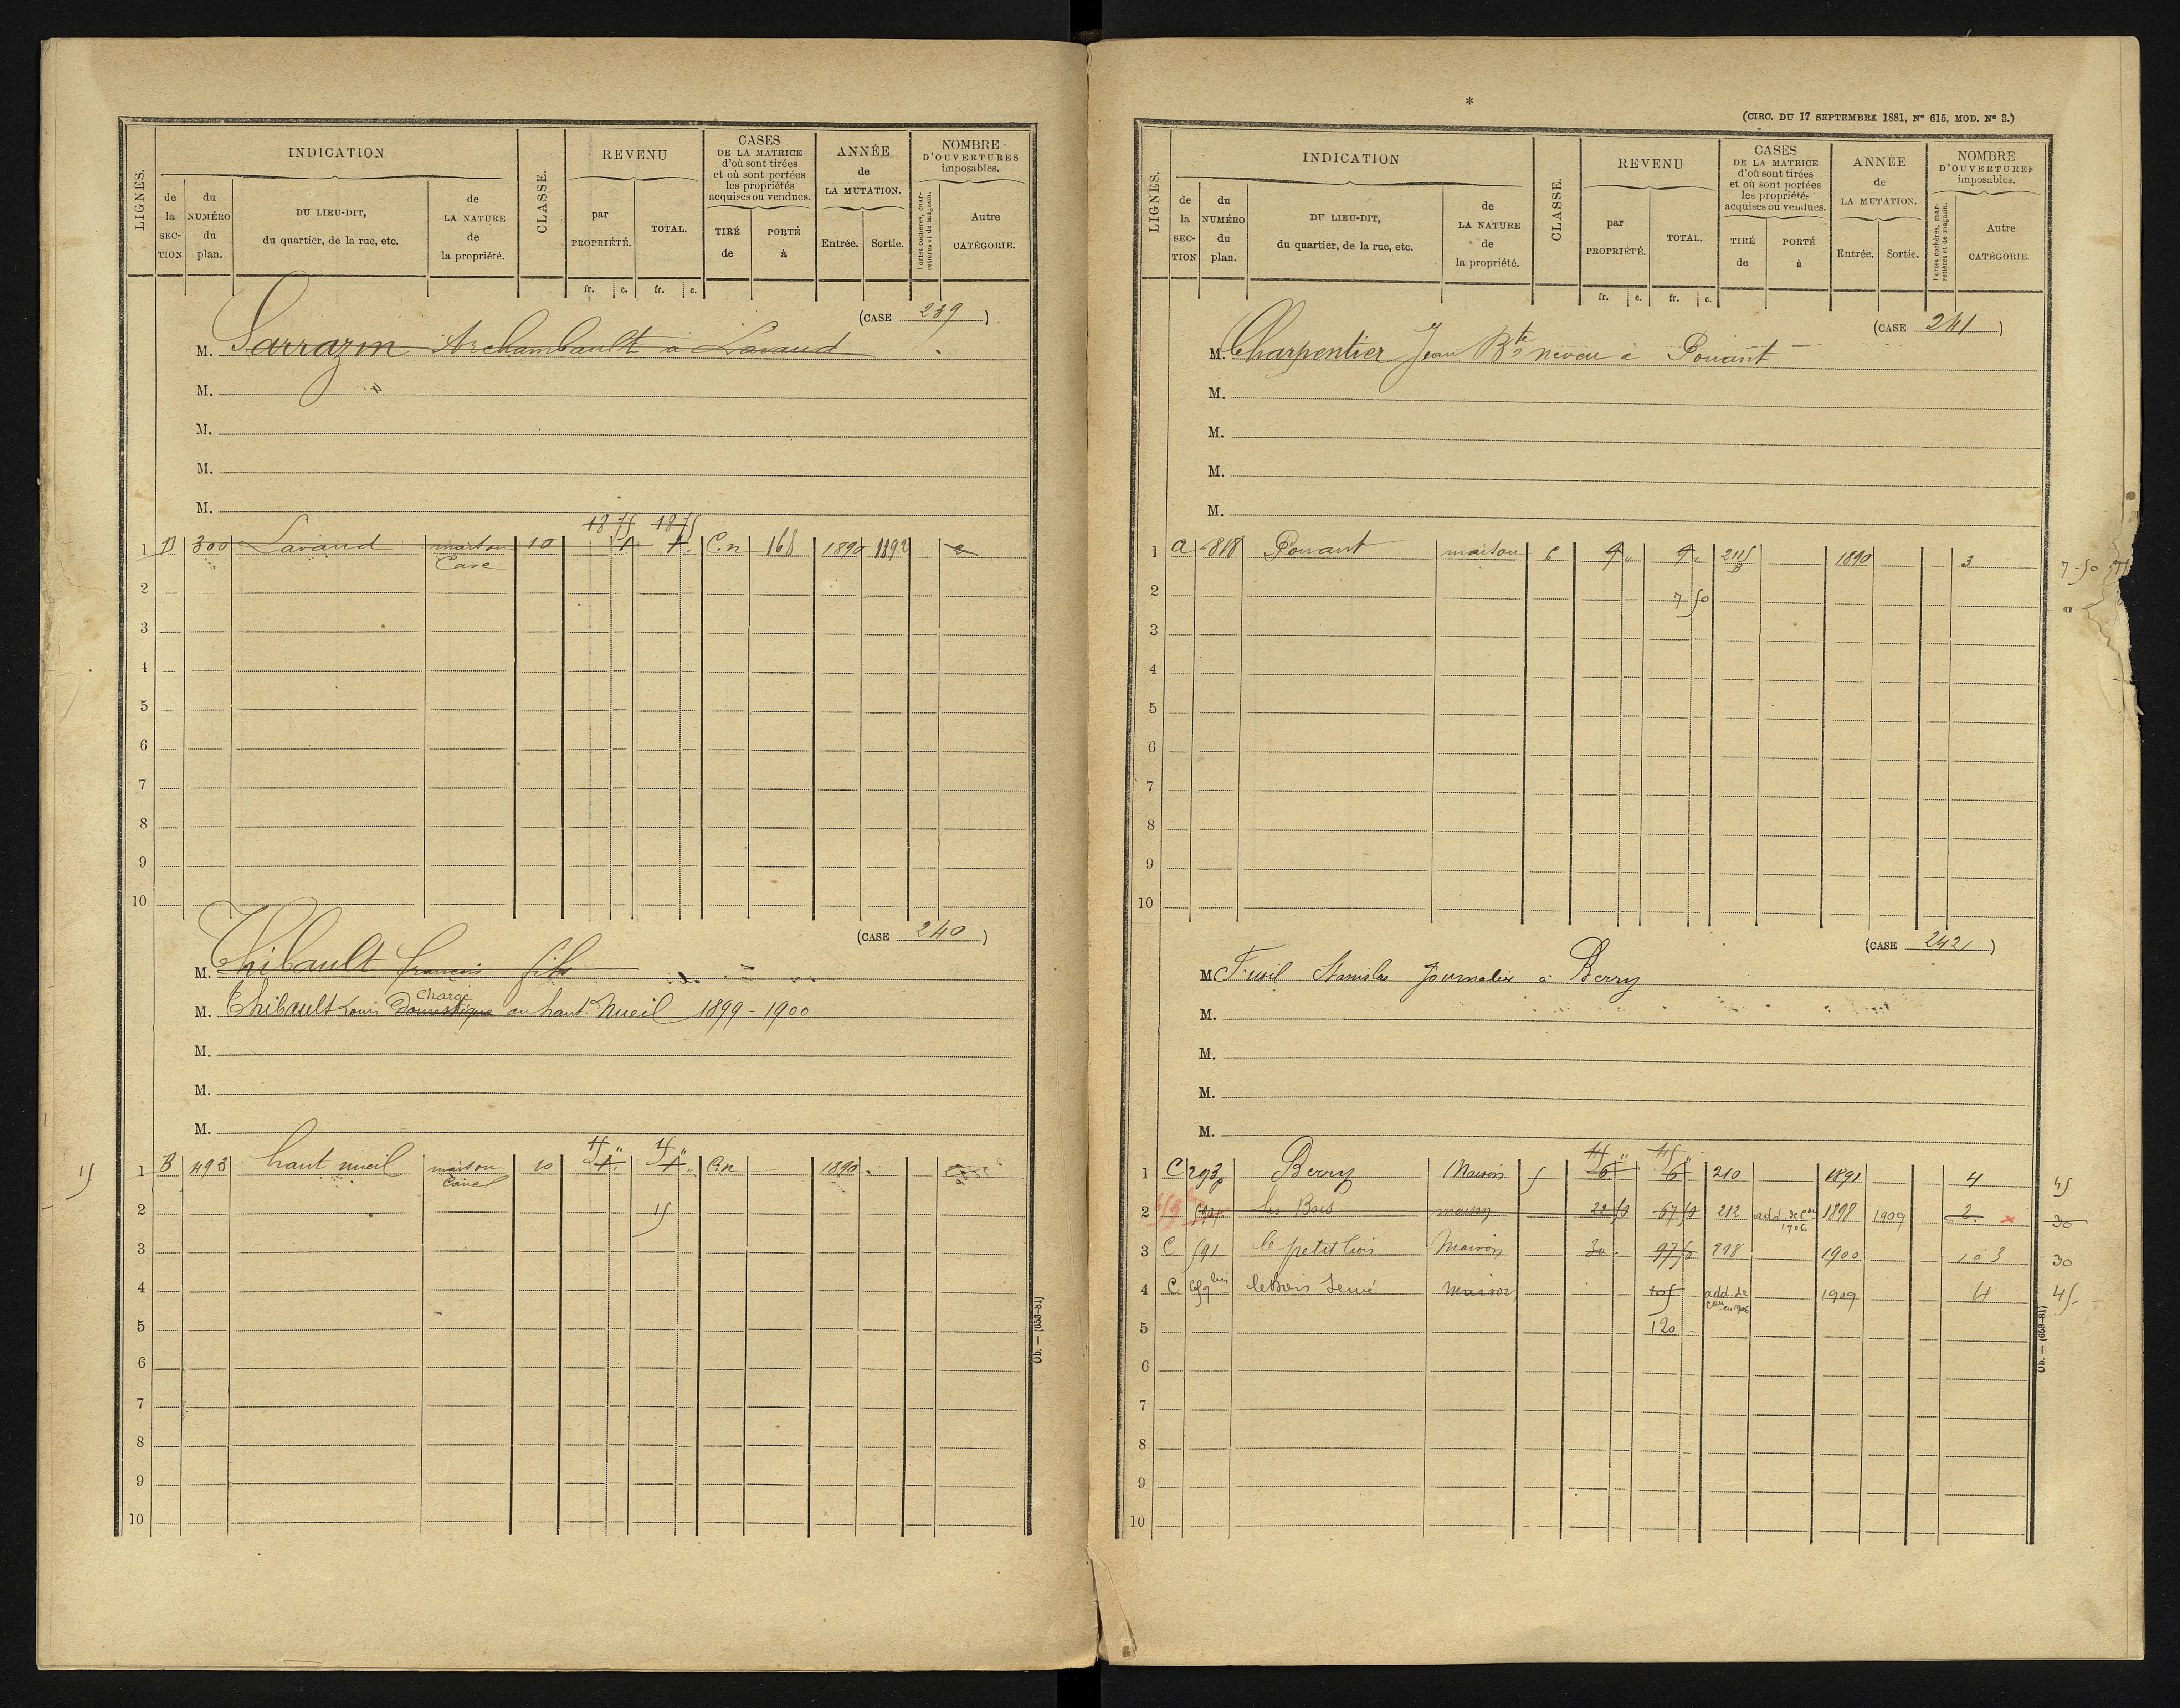 LIGNES.
INDICATION
de la SECTION
du NUMÉRO du plan.
DU LIEU-DIT, du quartier, de la rue, etc.
de LA NATURE de la propriété.
CLASSE.
REVENU
par PROPRIÉTÉ.
TOTAL.
CASES DE LA MATRICE d'où sont tirées et où sont portées les propriétés acquises ou vendues.
TIRÉ de
PORTÉ à
ANNÉE de LA MUTATION.
Entrée.
Sortie.
NOMBRE D'OUVERTURES imposables.
Portes cochères, charretières et de magasin.
Autre CATÉGORIE.
fr. c. fr. c.
(CASE 239)
M. Sarrazin Archambault à Lavaud
M.
M.
M.
M.
18 75 18 75
1 B 300 Lavaud maison 10 1 1 C.n 168 1890 1892
Cave
2
3
4
5
6
7
8
9
10
(CASE 240)
M. Thibault françois fils
Charge
M. Thibault Louis Domestique au haut Nueil 1899-1900
M.
M.
M.
15 " 15 "
15 1 B 493 haut nueil maison 10 1 1 C.n 1890
Cave
2 15
3
4
5
6
7
8
9
10
Ob. — (653-81)
*
(CIRC. DU 17 SEPTEMBRE 1881, N° 615, MOD. N° 3.)
LIGNES.
INDICATION
de la SECTION
du NUMÉRO du plan.
DU LIEU-DIT, du quartier, de la rue, etc.
de LA NATURE de la propriété.
CLASSE.
REVENU
par PROPRIÉTÉ.
TOTAL.
CASES DE LA MATRICE d'où sont tirées et où sont portées les propriétés acquises ou vendues.
TIRÉ de
PORTÉ à
ANNÉE de LA MUTATION.
Entrée.
Sortie.
NOMBRE D'OUVERTURES imposables.
Portes cochères, charretières et de magasin.
Autre CATÉGORIE.
fr. c. fr. c.
(CASE 241)
M. Charpentier Jean Bte neveu à Pouant
M.
M.
M.
M.
1 A 818 Pouant maison 6 1890 3 7-50
2 7 50
3
4
5
6
7
8
9
10
(CASE 242)
M. Fusil Stanislas Journalier à Berry
M.
M.
M.
M.
45 " 45 "
1 C 293p Berry Maison 5 6 6 210 1891 4 45
2 les Bois maison 22 50 67 50 212 add. de con 1906 1898 1909 2 x 30
3 C 591 le petit bois Maison 30 97 50 998 1900 1 à 3 30
4 C maison 105 add. de con en 1906 1909 4 45
5 120
6
7
8
9
10
Ob. — (653-81)